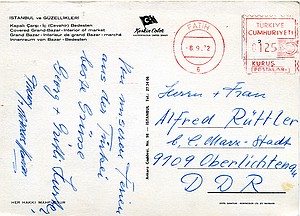 İSTANBUL ve GÜZELLİKLERİ
Kapalı Çarşı - İç (Cevahir) Bedesten
Covered Grand-Bazar - Interior of market
Grand Bazar - Interieur de grand Bazar - marché
Innenraum von Basar - Bedesten
Keskin Color
FATİH
-6.9.72
6
TÜRKİYE
CUMHURİYETİ
125
KURUŞ
POSTALARI
Aus unseren Ferien
aus der Türkei
beste Grüsse
Ankara Caddesi, No. 98 - İSTANBUL - Tel.
Herrn + Frau
Alfred Rüttler
b. C. Marx-Stadt
9109 Oberlichtenau
DDR
HER HAKKI MAHFUZDUR